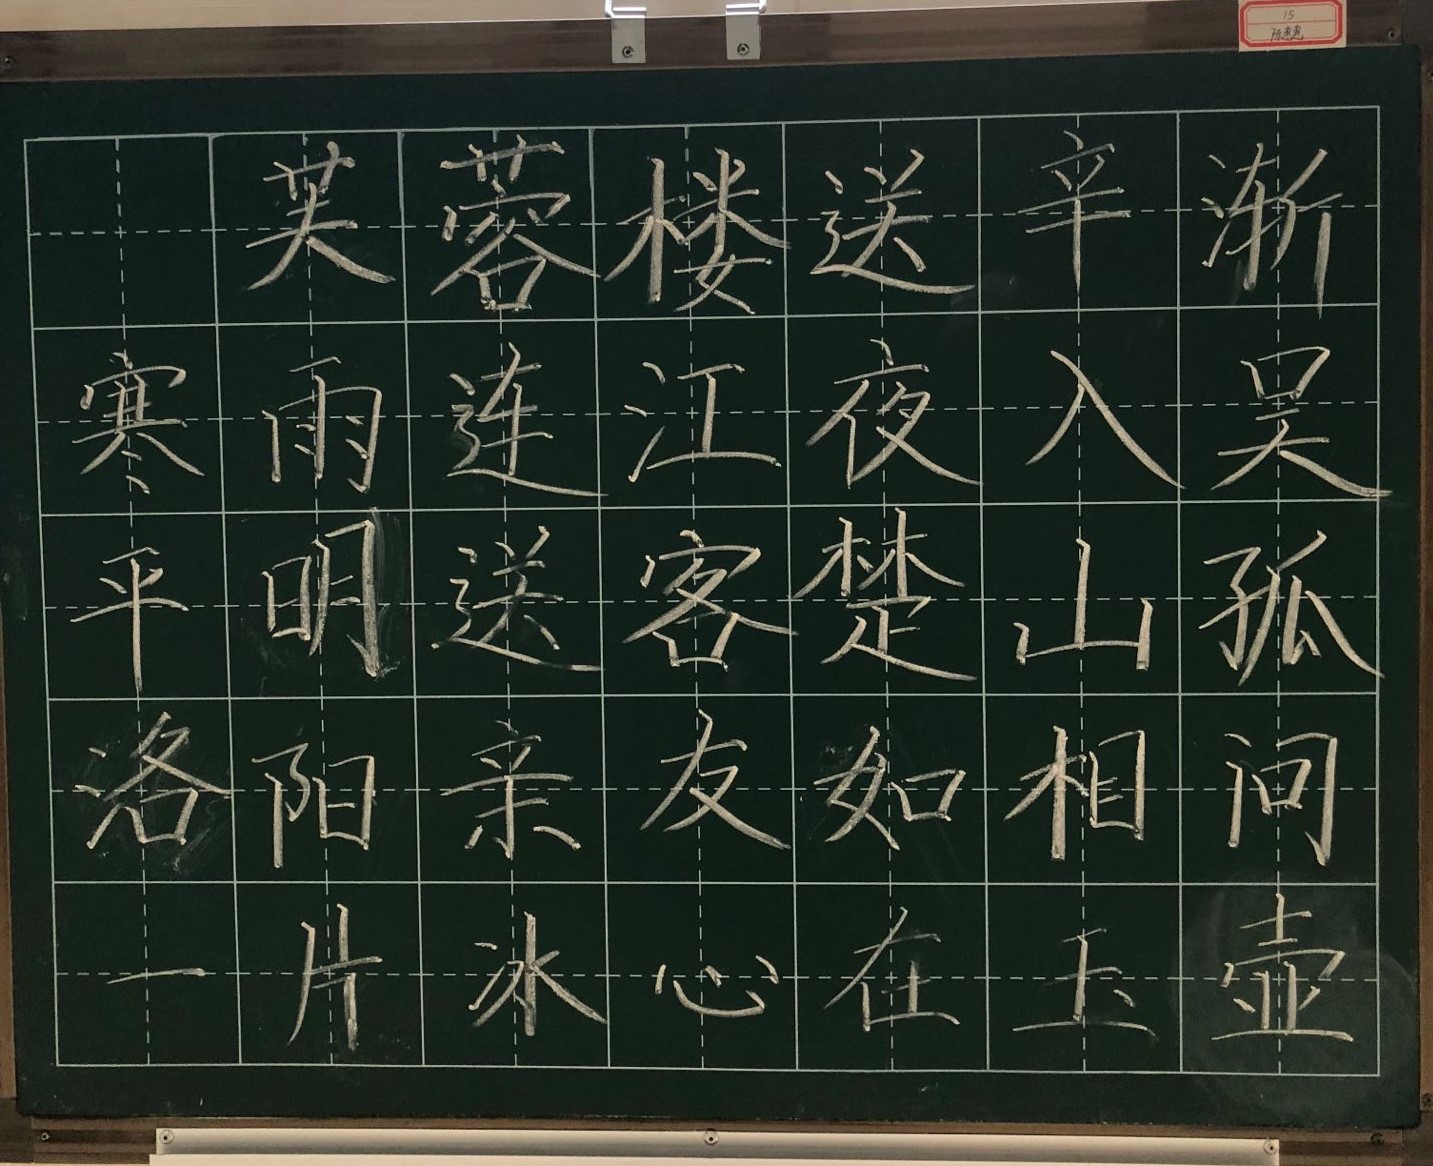 15
陈惠惠
芙蓉楼送辛渐
寒雨连江夜入吴
平明送客楚山孤
洛阳亲友如相问
一片冰心在玉壶